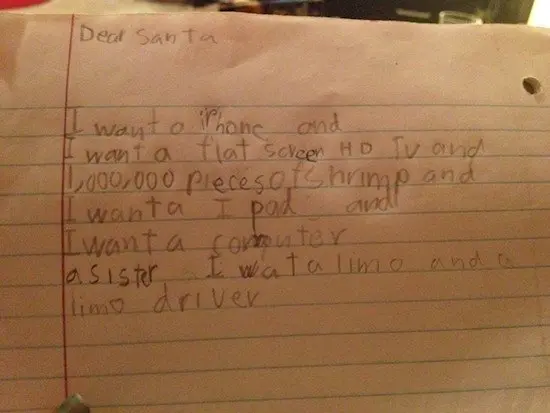 Dear Santa
I want a iPhone and
I want a flat screen HD Tv and
1,000,000 pieces of Shrimp and
I want a I pad and
I want a computer
a sister I wat a limo and a
limo driver